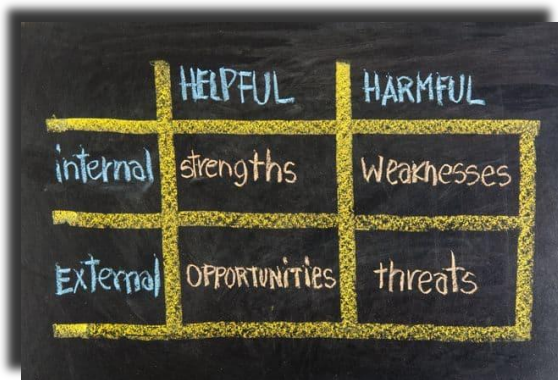 HELPFUL HARMFUL
internal strengths Weaknesses
External OPPORTUNITIES threats